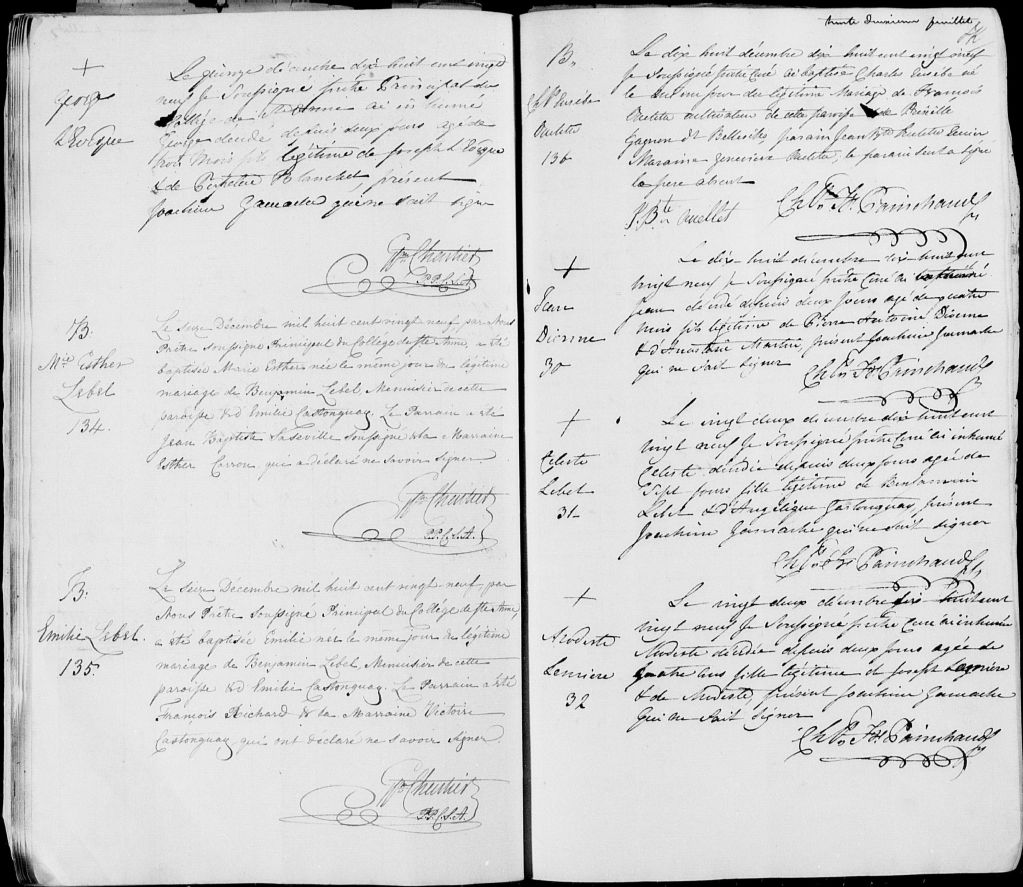 +
George
L'Evêque
Le quinze décembre dix huit cent vingt
neuf Je Soussigné prêtre Principal du
Collége de Ste Anne ai inhumé
George décédé depuis deux jours agé de
trois mois fils légitime de Joseph L'Evêque
& de Blanchet, présent
Joachim Gamache qui ne sait signer
Ptre
P.P.C.S.A.
B.
Mie Esther
Lebel
134.
Le seize Décembre mil huit cent vingt neuf, par Nous
Prêtre soussigné Principal du Collége de Ste Anne, a été
baptisée Marie Esther née le même jour du légitime
mariage de Benjamin Lebel, Menuisier de cette
paroisse & d'Emilie Castonguay. Le Parrain a été
Jean Baptiste Saseville soussigné & la Marraine
Esther Carron qui a déclaré ne savoir signer.
P.P.C.S.A.
B.
Emilie Lebel.
135.
Le seize Décembre mil huit cent vingt neuf, par
Nous Prêtre Soussigné Principal du Collége de Ste Anne,
a été baptisée Emilie née le même jour du légitime
mariage de Benjamin Lebel, Menuisier de cette
paroisse & d'Emilie Castonguay. Le Parrain a été
François Richard & la Marraine Victoire
Castonguay qui ont déclaré ne savoir signer.
P.P.C.S.A.
trente deuxieme feuillet
B.
Chs Eusèbe
Ouelette
136
Le dix huit décembre dix huit cent vingt neuf
Je Soussigné prêtre Curé ai baptisé Charles Eusèbe né
le même jour du légitime Mariage de François
Ouelette cultivateur de cette paroisse & de
Gagnon dt Bellesile, parain Jean Bte Ouelette
Maraine Genevieve Ouelette, le parain seul a signé
le pere absent
J. Bte Ouellet
Chs Frs Painchaud Ptre
+
Jean
Dionne
30
Le dix huit decembre dix huit cent
vingt neuf je Soussigné prêtre Curé ai inhumé
Jean décédé depuis deux jours agé de quatre
mois fils légitime de Pierre Antoine Dionne
& d'Anastasie Martin, présent Joachim Gamache
qui ne sait signer
Chs Frs Painchaud Ptre
+
Celeste
Lebel
31
Le vingt deux decembre dix huit cent
vingt neuf Je Soussigné prêtre Curé ai inhumé
Celeste décédée depuis deux jours agée de
Sept jours fille légitime de Benjamin
Lebel & d'Angélique Castonguay, présent
Joachim Gamache qui ne sait signer
Chs Frs Painchaud Ptre
+
Modeste
Lemière
32
Le vingt deux décembre dix huit cent
vingt neuf Je Soussigné prêtre Curé ai inhumé
Modeste décédée depuis deux jours agée de
quatre ans fille légitime de Joseph
& de Modeste, présent Joachim Gamache
qui ne sait signer
Chs Frs Painchaud Ptre